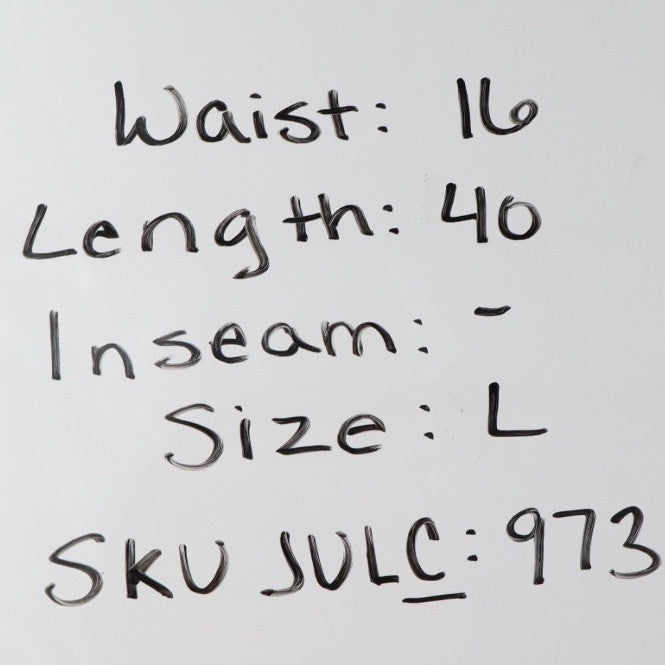 Waist: 16
Length: 40
Inseam: -
Size: L
SKU JULC: 973